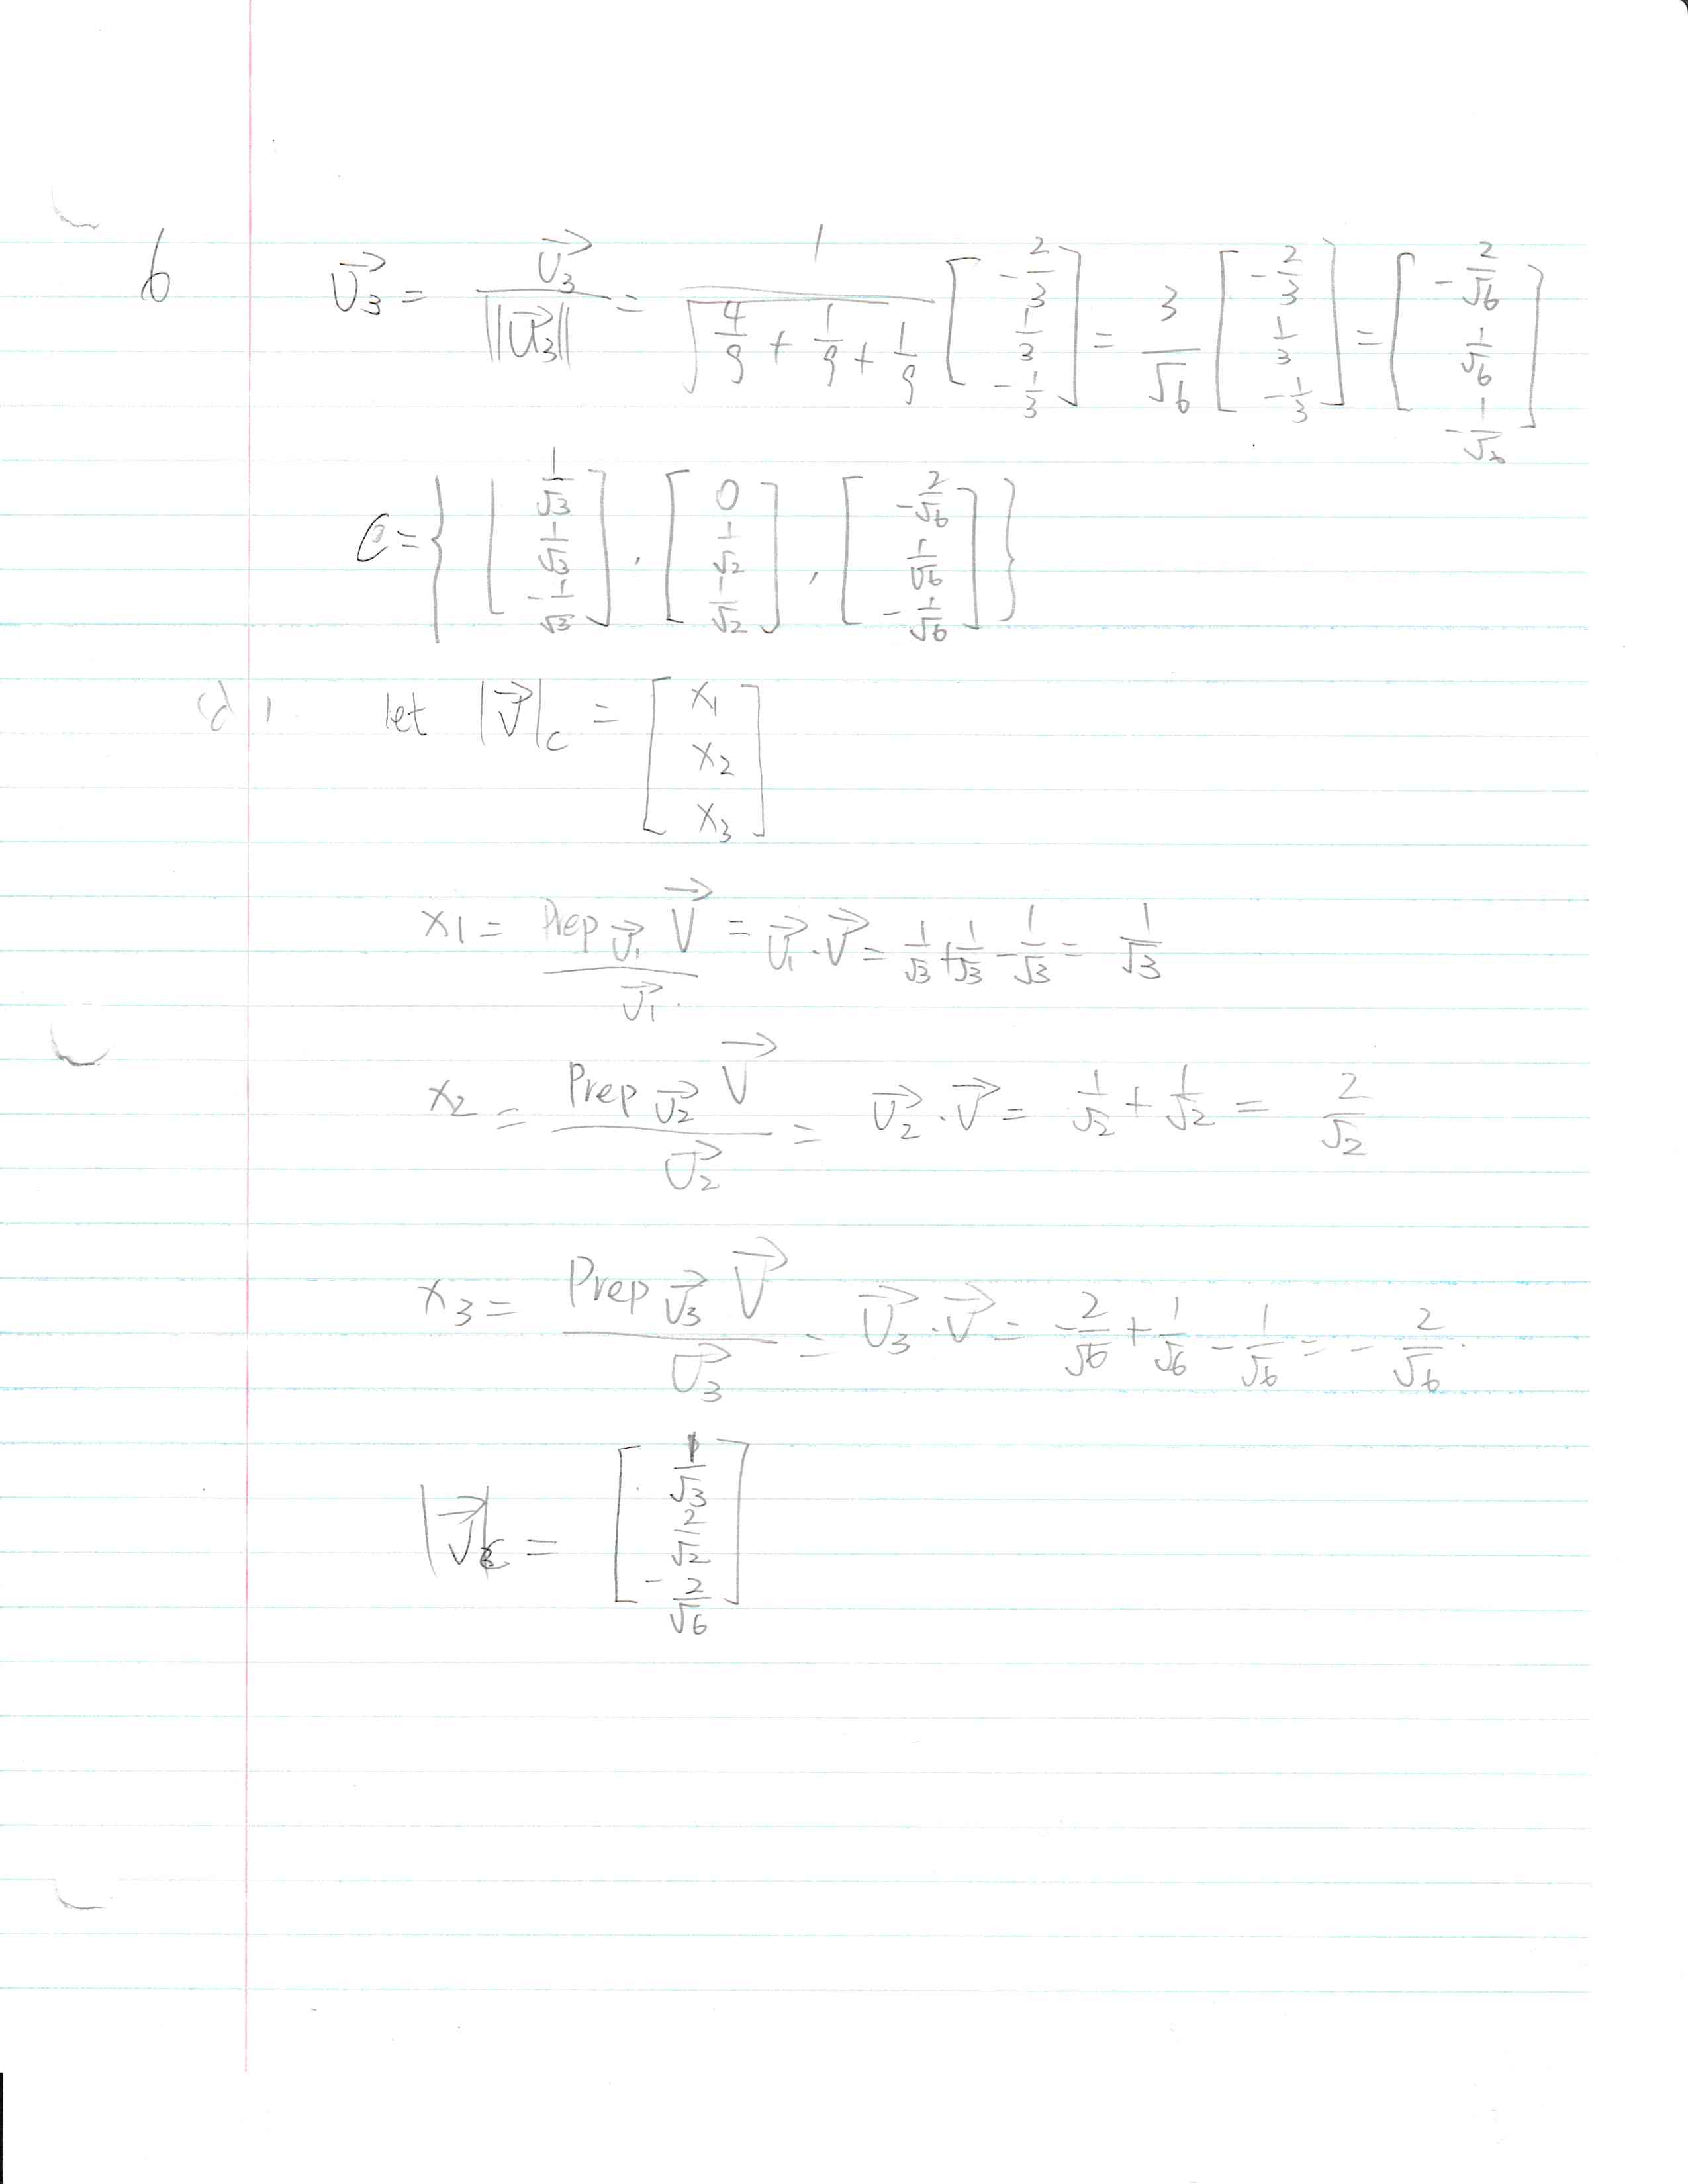 6 \vec{U_3} = \frac{\vec{U_3}}{||\vec{U_3}||} = \frac{1}{\sqrt{\frac{4}{9} + \frac{1}{9} + \frac{1}{9}}} \begin{bmatrix} -\frac{2}{3} \\ \frac{1}{3} \\ -\frac{1}{3} \end{bmatrix} = \frac{3}{\sqrt{6}} \begin{bmatrix} -\frac{2}{3} \\ \frac{1}{3} \\ -\frac{1}{3} \end{bmatrix} = \begin{bmatrix} -\frac{2}{\sqrt{6}} \\ \frac{1}{\sqrt{6}} \\ -\frac{1}{\sqrt{6}} \end{bmatrix}
C = \left\{ \begin{bmatrix} \frac{1}{\sqrt{3}} \\ \frac{1}{\sqrt{3}} \\ -\frac{1}{\sqrt{3}} \end{bmatrix}, \begin{bmatrix} 0 \\ \frac{1}{\sqrt{2}} \\ \frac{1}{\sqrt{2}} \end{bmatrix}, \begin{bmatrix} -\frac{2}{\sqrt{6}} \\ \frac{1}{\sqrt{6}} \\ -\frac{1}{\sqrt{6}} \end{bmatrix} \right\}
let |\vec{V}|_C = \begin{bmatrix} x_1 \\ x_2 \\ x_3 \end{bmatrix}
x_1 = \frac{Prep_{\vec{U_1}} \vec{V}}{\vec{U_1}} = \vec{U_1} \cdot \vec{V} = \frac{1}{\sqrt{3}} + \frac{1}{\sqrt{3}} - \frac{1}{\sqrt{3}} = \frac{1}{\sqrt{3}}
x_2 = \frac{Prep_{\vec{U_2}} \vec{V}}{\vec{U_2}} = \vec{U_2} \cdot \vec{V} = \frac{1}{\sqrt{2}} + \frac{1}{\sqrt{2}} = \frac{2}{\sqrt{2}}
x_3 = \frac{Prep_{\vec{U_3}} \vec{V}}{\vec{U_3}} = \vec{U_3} \cdot \vec{V} = -\frac{2}{\sqrt{6}} + \frac{1}{\sqrt{6}} - \frac{1}{\sqrt{6}} = -\frac{2}{\sqrt{6}}
|\vec{V}|_C = \begin{bmatrix} \frac{1}{\sqrt{3}} \\ \frac{2}{\sqrt{2}} \\ -\frac{2}{\sqrt{6}} \end{bmatrix}